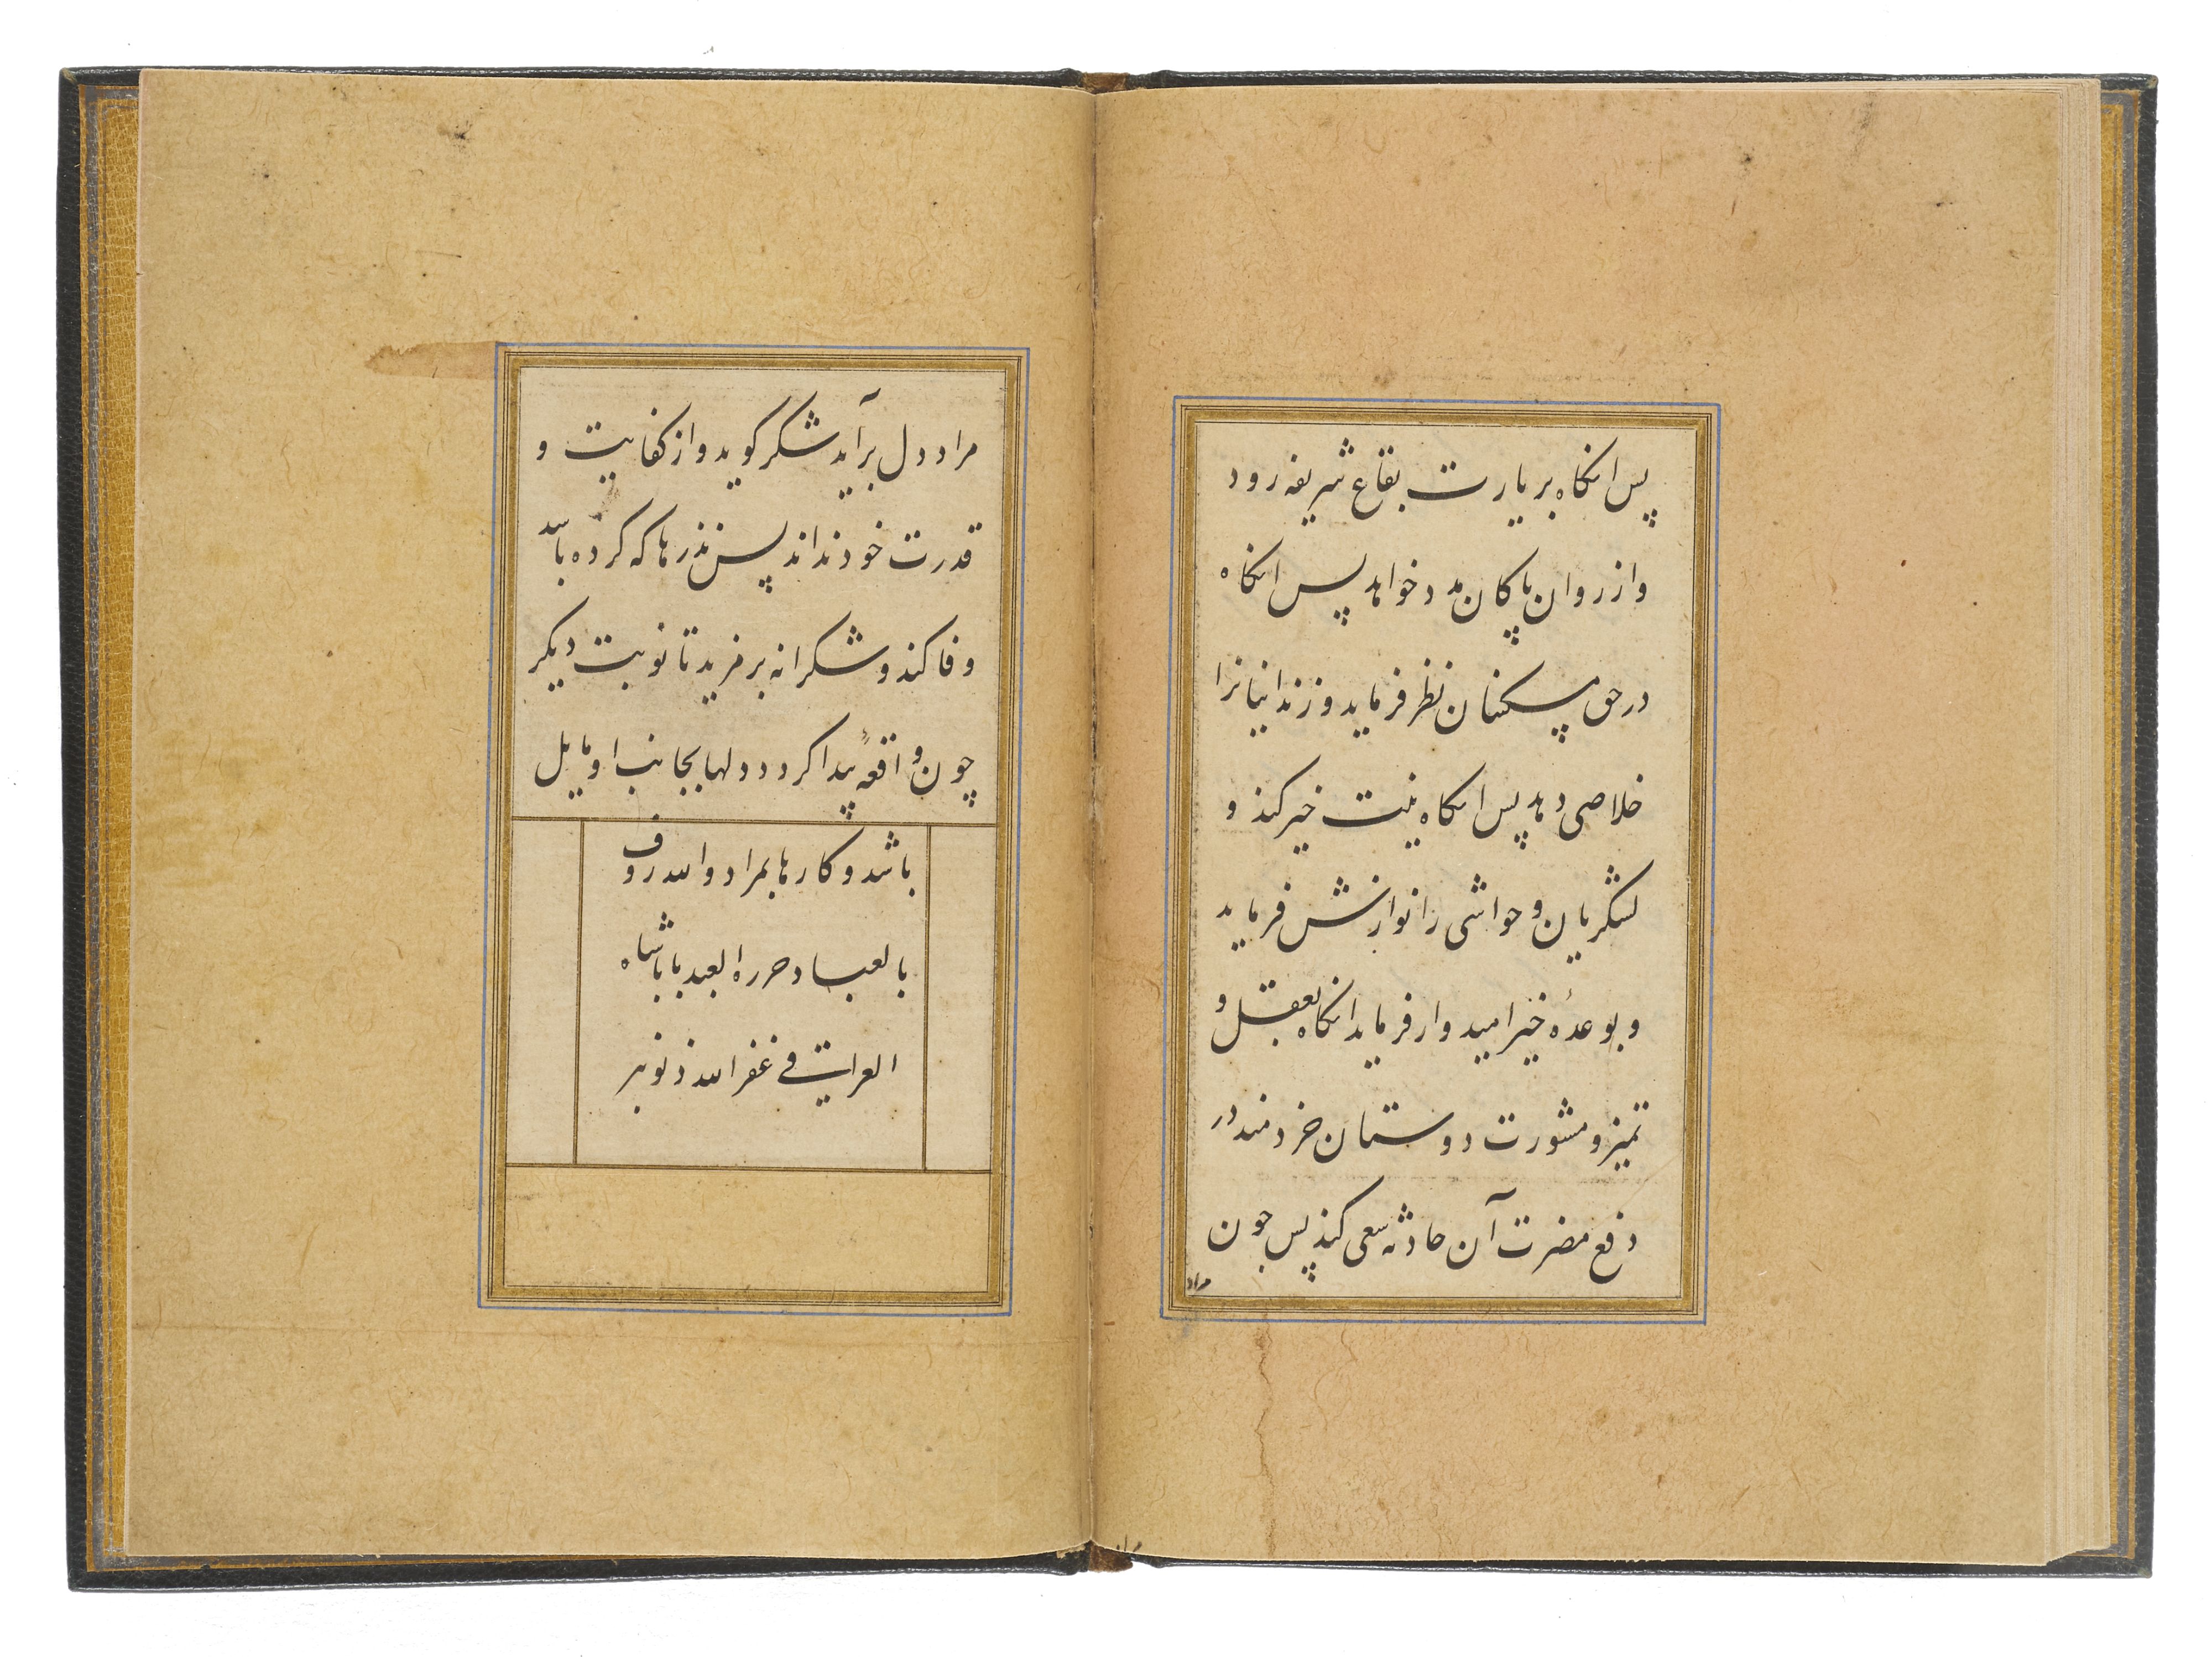 پس انکاه بزیارت بقاع شریفه رود
و از روان پاکان مدد خواهد پس انکاه
در حق مسکینان نظر فرماید و زندانیانرا
خلاصی دهد پس انکاه نیت خیر کند و
لشکریان و حواشی را نوازش فرماید
و بوعدهٔ خیر امیدوار فرماید انکاه بعقل و
تمیز و مشورت دوستان خردمند در
دفع مضرت آن حادثه سعی کند پس چون
مراد
مراد دل برآید شکر کوید و از کفایت و
قدرت خود نداند پس نذرها که کرده باشد
وفا کند و شکرانه بر مزید تا نوبت دیکر
چون واقعهٔ پیدا کردد دلها بجانب او مایل
باشد و کارها بمراد والله روف
بالعباد حرره العبد باباشاه
العراقی غفرالله ذنوبه